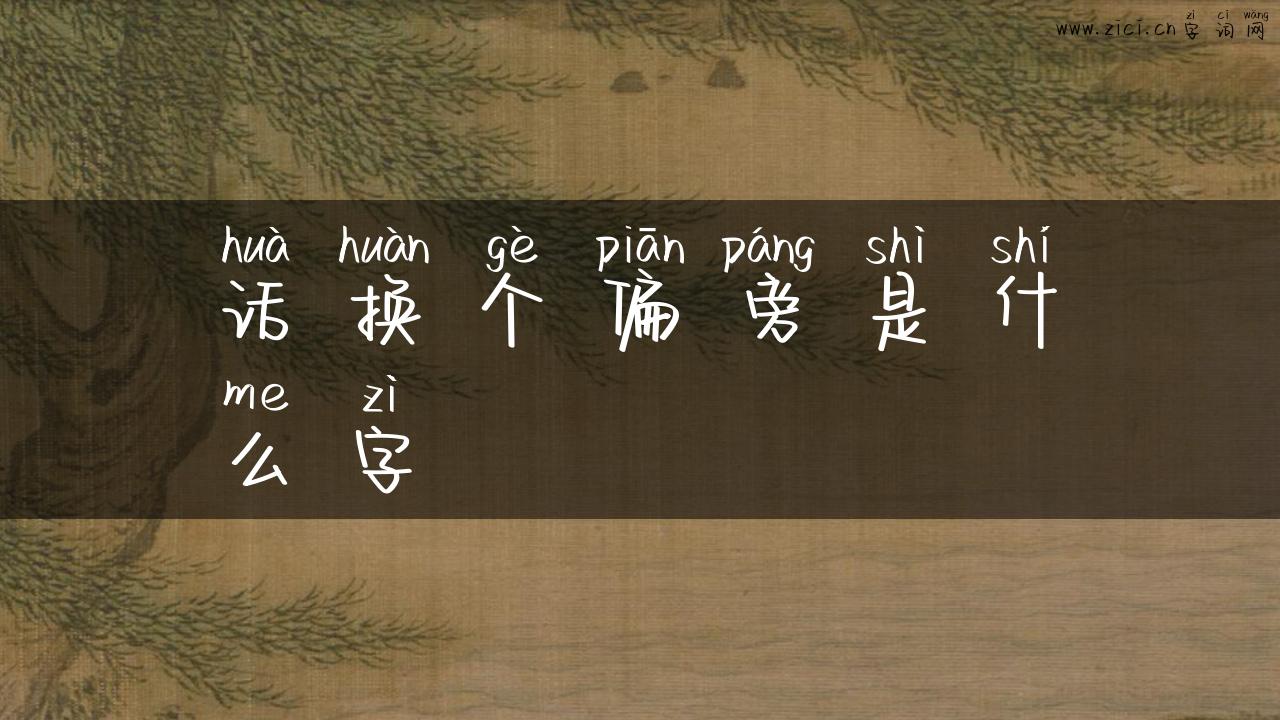 zì cí wǎng
www.zici.cn 字 词 网
huà huàn gè piān páng shì shí
话 换 个 偏 旁 是 什
me zì
么 字